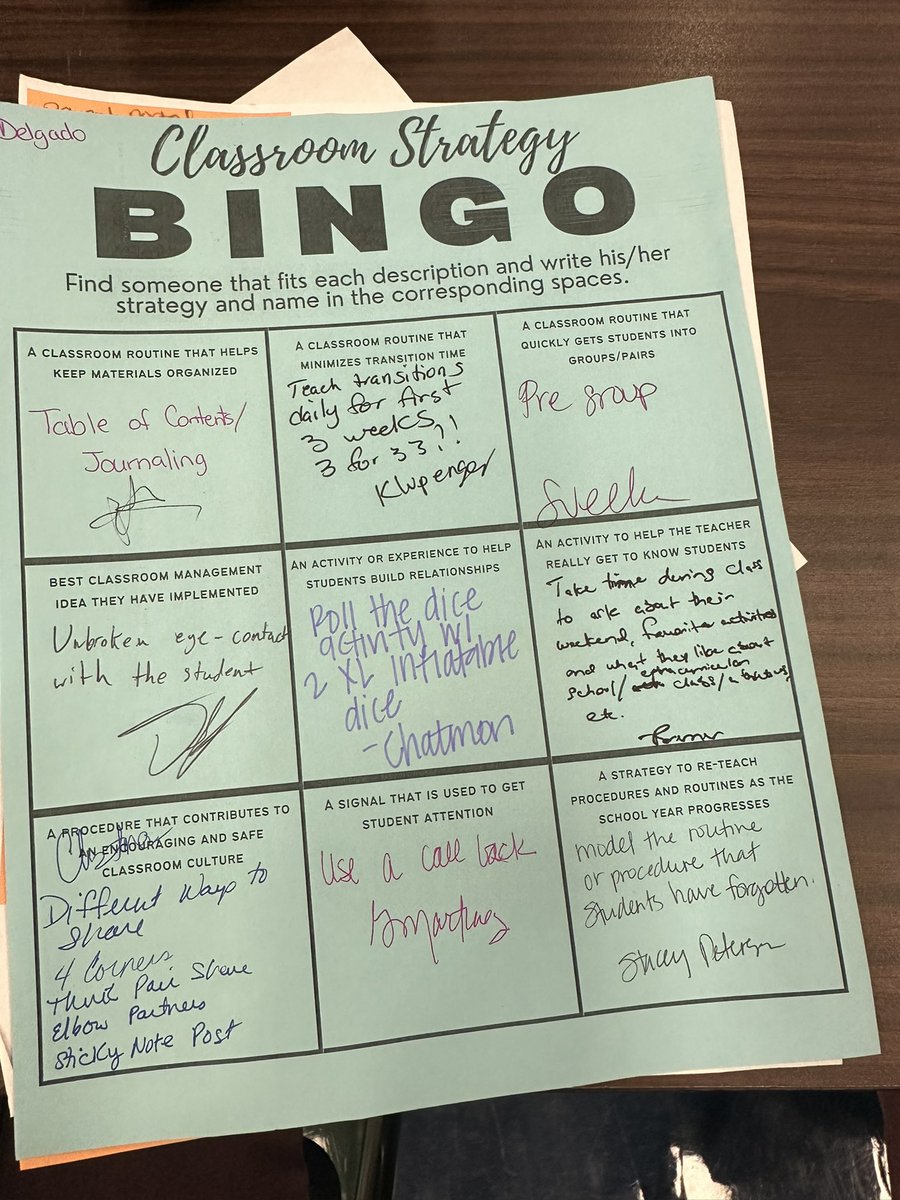 Delgado
Classroom Strategy
BINGO
Find someone that fits each description and write his/her
strategy and name in the corresponding spaces.
A CLASSROOM ROUTINE THAT HELPS
KEEP MATERIALS ORGANIZED
Table of Contents/
Journaling
A CLASSROOM ROUTINE THAT
MINIMIZES TRANSITION TIME
Teach transitions
daily for first
3 weeks
3 for 33?!
A CLASSROOM ROUTINE THAT
QUICKLY GETS STUDENTS INTO
GROUPS/PAIRS
Pre group
BEST CLASSROOM MANAGEMENT
IDEA THEY HAVE IMPLEMENTED
Unbroken eye-contact
with the student
AN ACTIVITY OR EXPERIENCE TO HELP
STUDENTS BUILD RELATIONSHIPS
Roll the dice
activity w/
2 XL Inflatable
dice
-Chatmon
AN ACTIVITY TO HELP THE TEACHER
REALLY GET TO KNOW STUDENTS
Take time during class
to ask about their
weekend, favorite activities
and what they like about
school/ extracurricular
class/
etc.
A PROCEDURE THAT CONTRIBUTES TO
AN ENCOURAGING AND SAFE
CLASSROOM CULTURE
Different Ways to
Share
4 Corners
Think Pair Share
Elbow Partners
Sticky Note Post
A SIGNAL THAT IS USED TO GET
STUDENT ATTENTION
Use a call back
A STRATEGY TO RE-TEACH
PROCEDURES AND ROUTINES AS THE
SCHOOL YEAR PROGRESSES
model the routine
or procedure that
students have forgotten.
Stacy Peterson